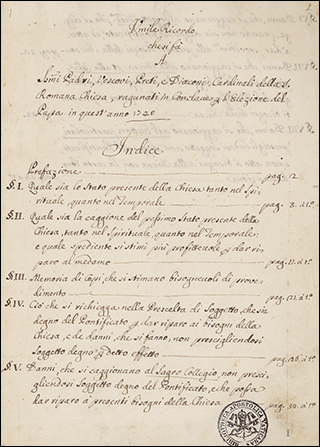 Umile Ricordo
che si fà
A
Padri, Vescovi, Preti, e Diaconi, Cardinali della S.
Romana Chiesa, ragunati in Conclave p l'Elezione del
Papa in quest'anno 1740
Indice
Prefazione pag. 12
§. I. Quale sia lo Stato presente della Chiesa tanto nel Spi-
rituale, quanto nel Temporale pag. 3. à t°.
§. II. Quale sia la caggione del pessimo Stato presente della
Chiesa, tanto nel Spirituale, quanto nel Temporale:
e quale spediente si stimi più profittevole p dar ri-
paro al medemo pag. 11. à t°.
§. III. Memoria di Capi, che si stimano bisognevoli di prove-
dimento pag. à t°.
§. IV. Ciò che si richiegga nella Prescelta di Soggetto, che sia
degno del Pontificato, p dar riparo ai bisogni della
Chiesa, e de' danni, che si fanno, non prescigliendosi
Soggetto degno p detto effetto pag. à t°.
§. V. Danni, che si caggionano al Sagro Collegio, non presci-
gliendosi Soggetto degno del Pontificato, e che possa
dar riparo à presenti bisogni della Chiesa pag. 30. à t°.
BIBLIOTHECA APOSTOLICA
1